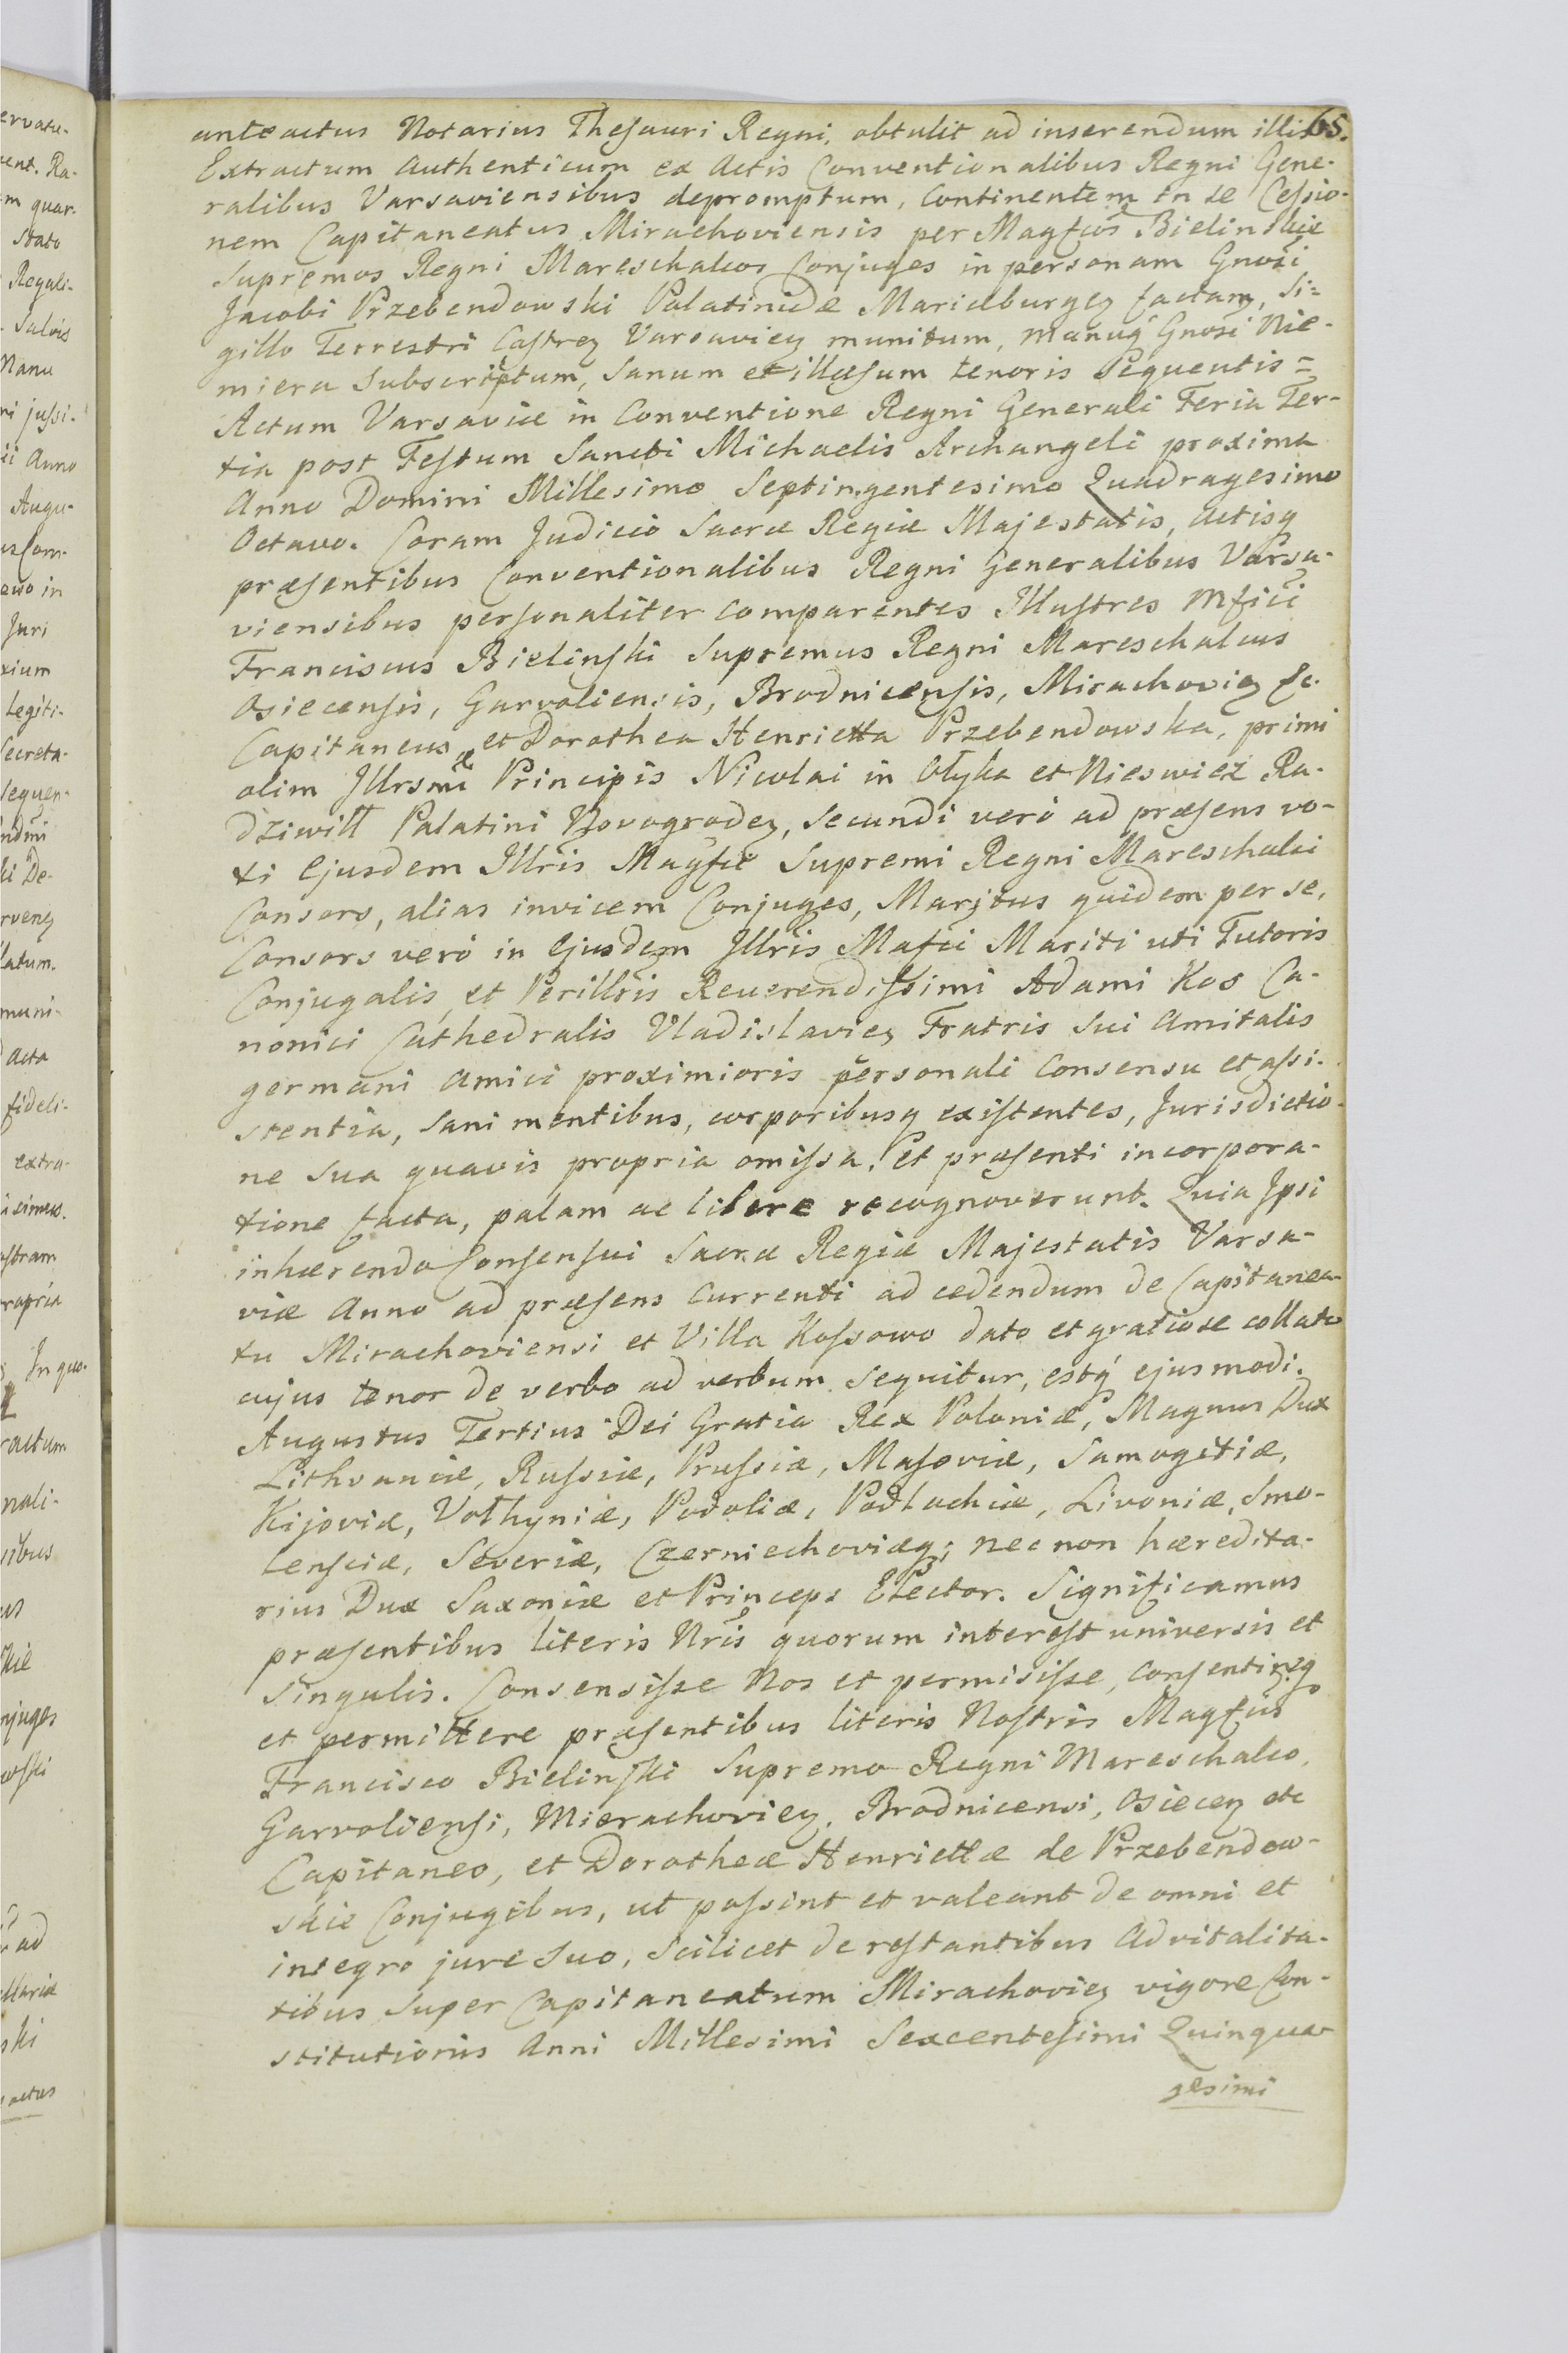 anteactus Notarius Thesauri Regni, obtulit ad inserendum illis 65.
Extractum authenticum ex Actis Conventionalibus Regni Gene-
ralibus Varsaviensibus depromptum, Continentem in se Cessio-
nem Capitaneatus Mirachoviensis per Magfcos Bielinskie
Supremos Regni Mareschalcos Conjuges in personam Gnosi
Jacobi Przebendowski Palatinidæ Marieburgen factam, Si=
gillo Terrestri Castren Varsavien munitum, manuq Gnosi Nie-
miera Subscriptum, Sanum et illæsum tenoris Sequentis=
Actum Varsaviæ in Conventione Regni Generali Feria Ter-
tia post Festum Sancti Michaelis Archangeli proxima
Anno Domini Millesimo Septingentesimo Quadragesimo
Octavo. Coram Judicio Sacræ Regiæ Majestatis, Actisq
præsentibus Conventionalibus Regni Generalibus Varsa-
viensibus personaliter comparentes Illustres Mfici
Franciscus Bielinski Supremus Regni Mareschalcus
Osiecensis, Garvoliensis, Brodnicensis, Mirachovien &c.
Capitaneus, et Dorothea Henrietta Przebendowska, primi
olim Illrsmi Principis Nicolai in Ołyka et Nieswież Ra-
dziwiłł Palatini Novogroden, Secundi verò ad præsens vo-
ti Ejusdem Illris Magfci Supremi Regni Mareschalci
Consors, alias invicem Conjuges, Maritus quidem per se,
Consors verò in Ejusdem Illris Mafci Mariti uti Tutoris
Conjugalis, et Perillris Reverendissimi Adami Kos Ca-
nonici Cathedralis Vladislavien Fratris Sui Amitalis
germani Amici proximioris personali Consensu et assi-
stentia, Sani mentibus, corporibusq existentes, Jurisdictio-
ne Sua quavis propria omissa, et præsenti incorpora-
tione facta, palam ac libere recognoverunt. Quia Ipsi
inhærendo Consensui Sacræ Regiæ Majestatis Varsa-
viæ Anno ad præsens Currenti ad cedendum de Capitanea-
tu Mirachoviensi et Villa Kossowo dato et gratiose collato
cujus tenor de verbo ad verbum sequitur, estq ejusmodi.
Augustus Tertius Dei Gratia Rex Poloniæ, Magnus Dux
Lithvaniæ, Russiæ, Prussiæ, Masoviæ, Samogitiæ,
Kijoviæ, Vołhyniæ, Podoliæ, Podlachiæ, Livoniæ, Smo-
lensciæ, Severiæ, Czerniechoviæq; necnon hæredita-
rius Dux Saxoniæ et Princeps Elector. Significamus
præsentibus literis Nris quorum interest universis et
Singulis. Consensisse Nos et permisisse, Consentireq
et permittere præsentibus literis Nostris Magfcis
Francisco Bielinski Supremo Regni Mareschalco,
Garvoliensi, Mierachovien, Brodnicensi, Osiecen etc
Capitaneo, et Dorotheæ Henriettæ de Przebendow-
skie Conjugibus, ut possint et valeant de omni et
integro jure Suo, Scilicet de restantibus Advitalita-
tibus Super Capitaneatum Mirachovien vigore Con-
stitutionis Anni Millesimi Sexcentesimi Quinqua-
gesimi